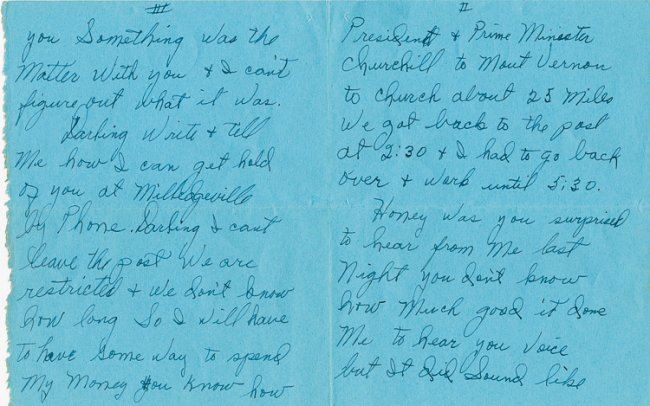 II
President & Prime Minister
Churchill to Mout Vernon
to church about 25 Miles
We got back to the post
at 2:30 & I had to go back
over & work until 5:30.
Honey was you surprised
to hear from Me last
Night you don't know
how Much good it done
Me to hear you Voice
but It did Sound like
III
you Something was the
Matter With you & I can't
figure out what it was.
Darling Write & tell
Me how I can get hold
of you at Milledgeville
by Phone. Darling I cant
leave the post We are
restricted & We don't know
how long So I will have
to have Some way to spend
My Money you know how